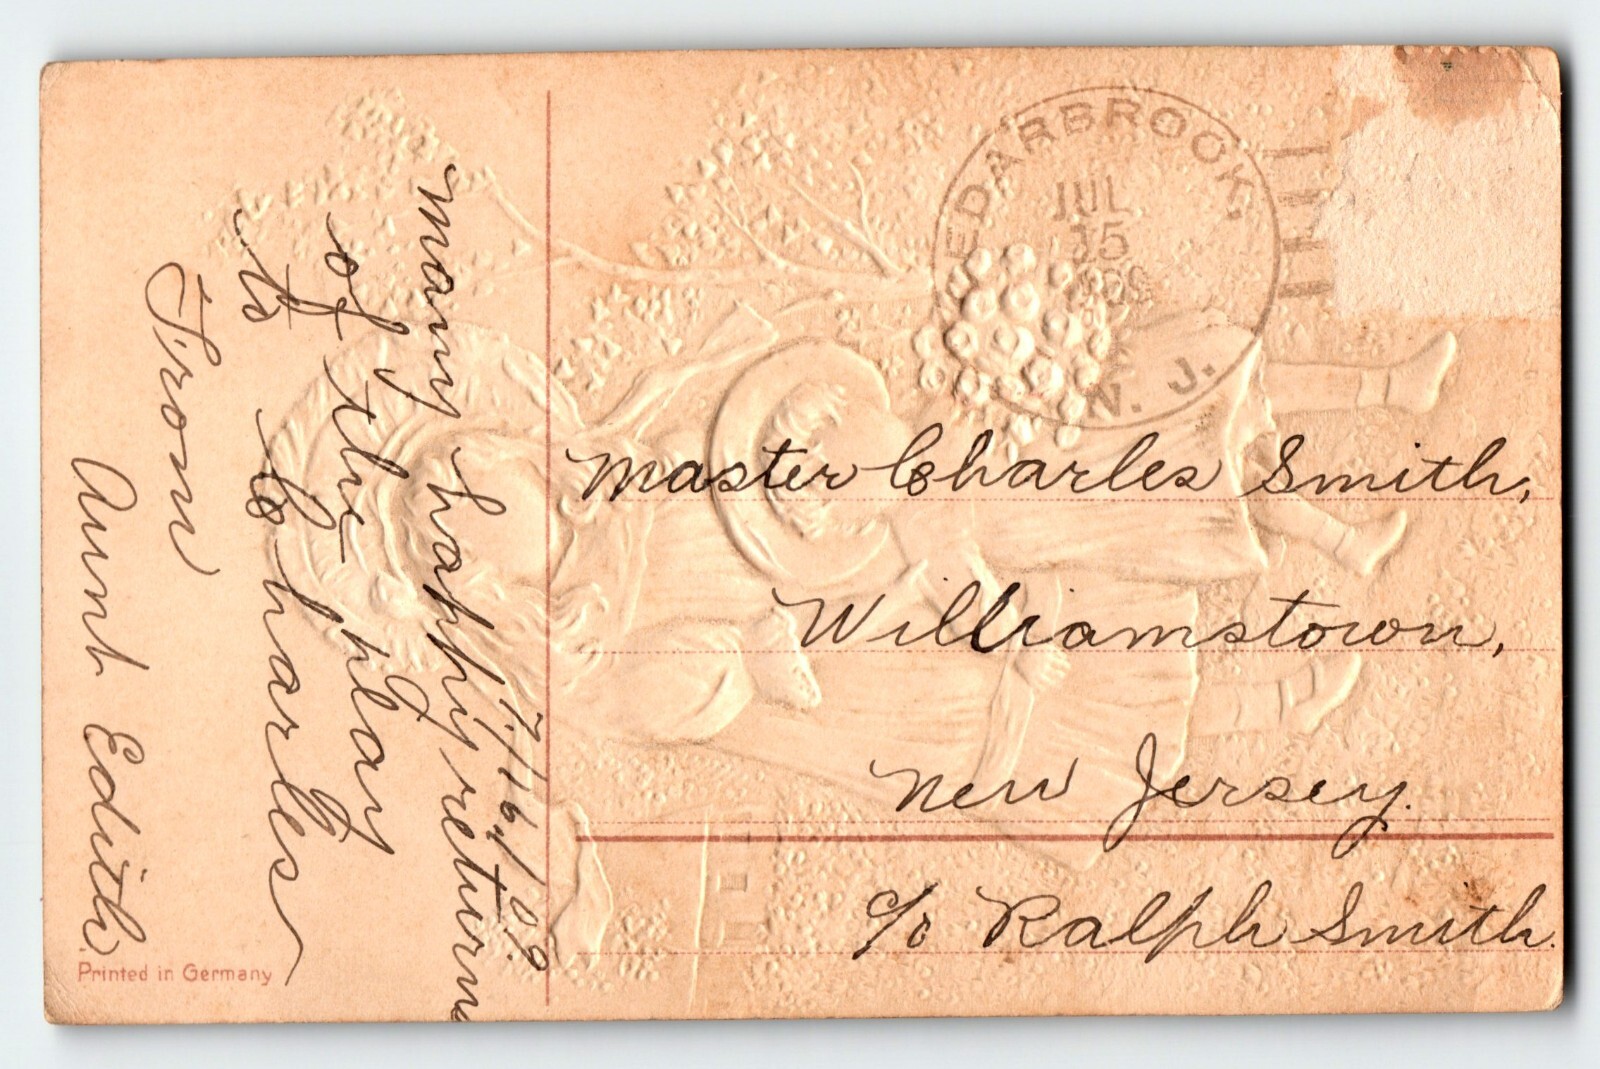 7./16./'09.
Many happy return
of the play
to Charles
From
Aunt Edith
Printed in Germany
CEDARBROOK,
JUL
15
N. J.
Master Charles Smith,
Williamstown,
New Jersey.
c/o Ralph Smith.